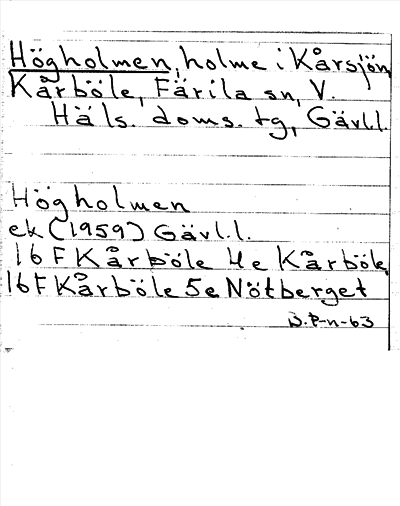 Högholmen, holme i Kårsjön,
Kårböle, Färila sn, V.
Häls. doms. tg, Gävl.l.
Högholmen
ek (1959) Gävl.l.
16 F Kårböle 4e Kårböle,
16 F Kårböle 5e Nötberget
B.P-n-63